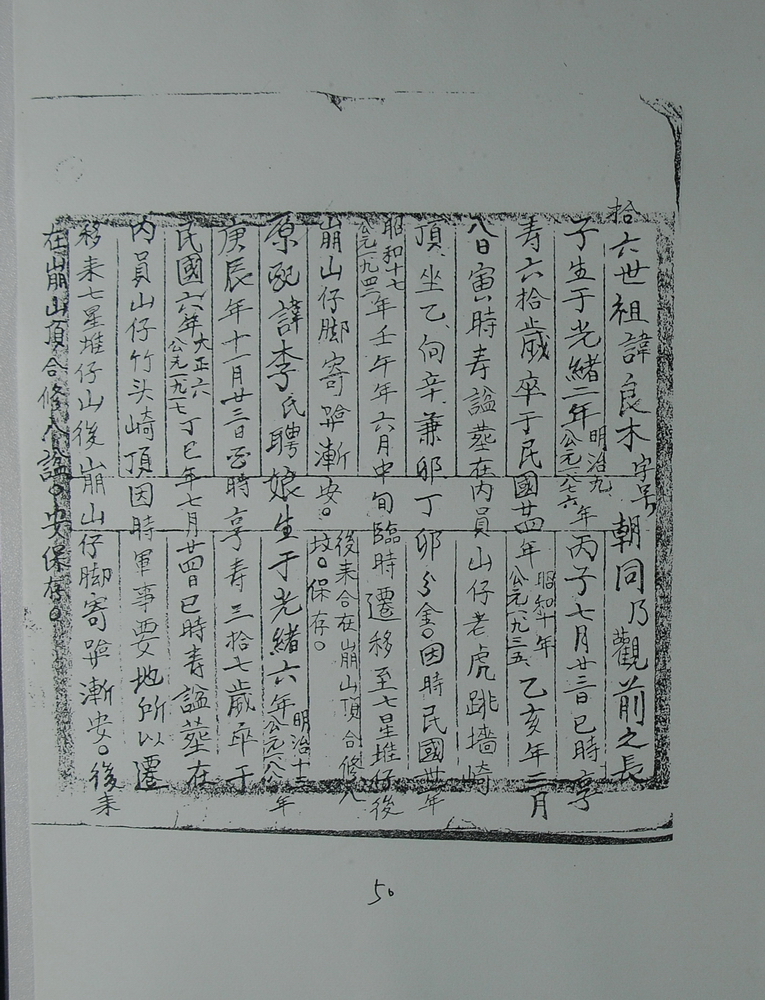 拾六世祖諱良木字号朝同乃觀前之長
子生于光緒二年明治九公元一八七六年丙子七月廿三日巳時享
寿六拾歲卒于民國廿四年昭和十年公元一九三五乙亥年二月
八日寅時寿謚塟在内員山仔老虎跳墻崎
頂、坐乙、向辛兼卯丁卯分金。因時民國卅一年
昭和十七公元一九四二年壬午年六月中旬臨時遷移至七星堆仔後
崩山仔脚寄漸安。後来合在崩山頂合修八坟。保存。
原配諱李氏聘娘生于光緒六年明治十三公元一八八〇年
庚辰年十一月廿三日酉時享寿三拾七歲卒于
民國六年大正六公元一九一七丁巳年七月廿四日巳時寿謚塟在
内員山仔竹头崎頂因時軍事要地所以遷
移来七星堆仔山後崩山仔脚寄漸安。後来
在崩山頂合修八謚。安保存。
50